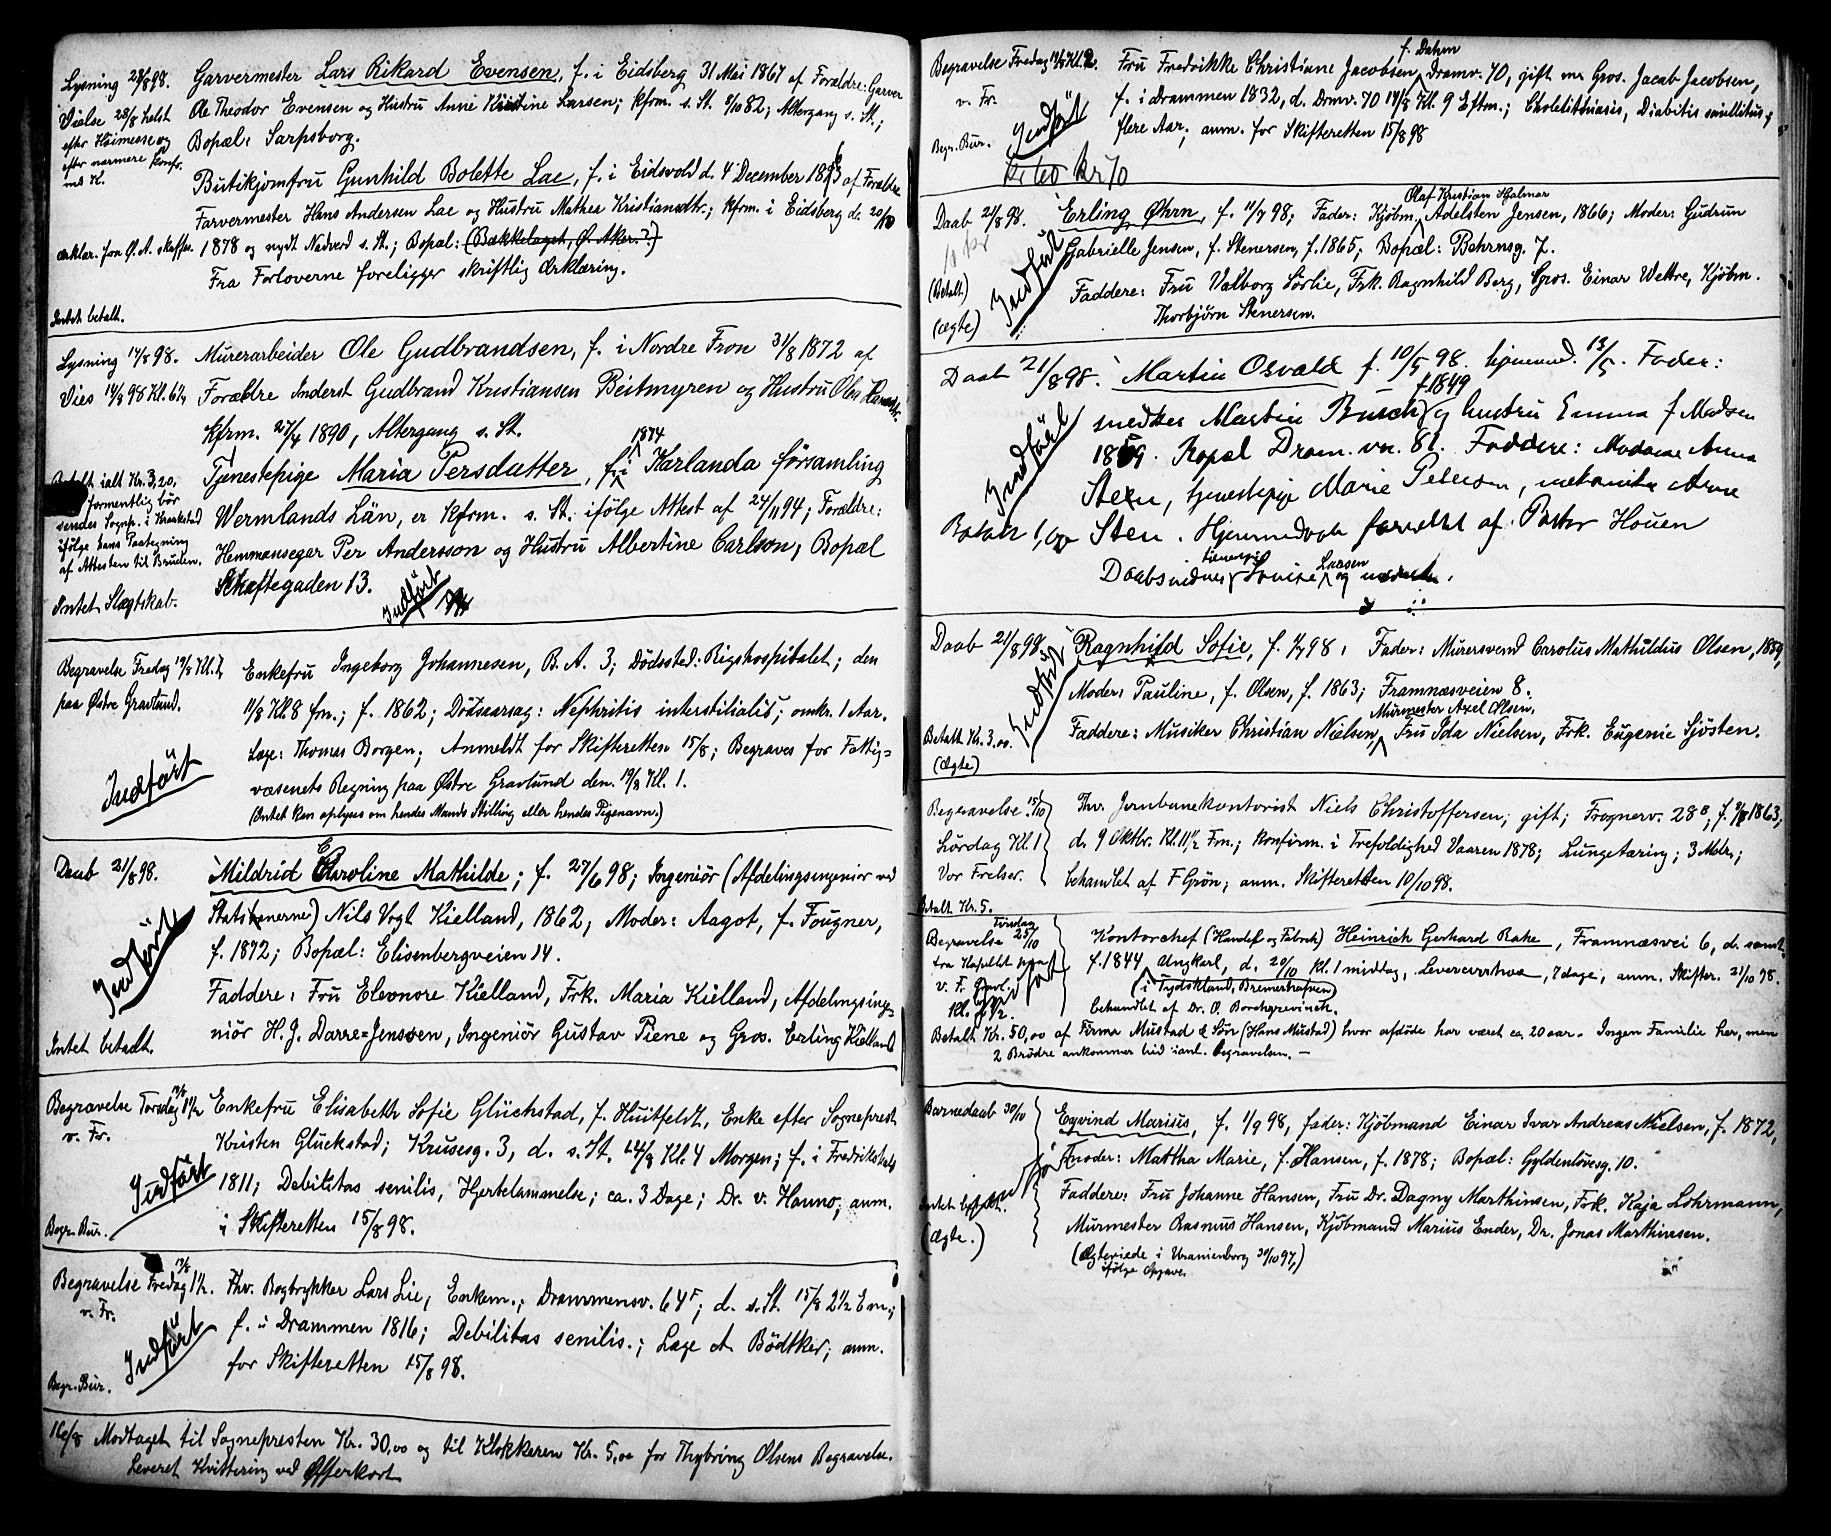 Lysning 28/8 98. Garvermester Lars Rikard Evensen, f. i Eidsberg 31 Mai 1867 af Forældre: Garver
Vielse 28/8 helst Ole Theodor Evensen og Hustru Anne Kristine Larsen; kfrm. s. St. 1/10 82; Altergang s. St.;
efter Høimesse og Bopæl: Sarpsborg.
efter nærmere Konfr.
med K.
Butikjomfru Gunhild Bolette Lae, f. i Eidsvold d. 4 December 1863 af Forældre
Farvermester Hans Andersen Lae og Hustru Mathea Kristiansdtr.; kfrm. i Eidsberg d. 20/10
Ærklær. fra Ø. A. skaffes. 1878 og nydt Nadverd s. St.; Bopæl: (Bækkelaget, Ø. Aker.?)
Fra Forloverne foreligger skriftlig Ærklæring.
Intet betalt.
Lysning 14/8 98. Murerarbeider Ole Gudbrandsen, f. i Nordre Fron 31/8 1872 af
Vies 14/8 98 Kl. 6½ Forældre Inderst Gudbrand Kristiansen Beitmyren og Hustru Olea Hansdtr.
kfrm. 27/4 1890, Altergang s. St.
1874
Tjenestepige Maria Persdatter, f. i Karlanda församling
Betalt ialt Kr. 3,20,
formentlig bør
sendes Sognep. i Kraakstad
ifølge hans Paategning
af Attesten til Bruden.
Wermlands Län, er kfrm. s. St. ifölge Attest af 24/11 94; Forældre:
Hemmansegar Per Andersson og Hustru Albertine Carlson; Bopæl
Schæftegaden 13.
Intet Slægtskab.
Indført
Begravelse Fredag 19/8 Kl. 1, Enkefru Ingeborg Johannesen, B. A. 3; Dödssted: Rigshospitalet; den
paa Østre Gravlund. 11/8 Kl 8 fm.; f. 1862; Dödsaarsag: Nephritis interstitialis; omkr. 1 Aar.
Læge: Thomas Borgen; Anmeldt for Skifteretten 15/8; Begraves for Fattig=
væsenets Regning paa Østre Gravlund den 19/8 Kl. 1.
Indført
(Intet kan oplyses om hendes Mands Stilling eller hendes Pigenavn.)
Daab 21/8 98. Mildrid Caroline Mathilde; f. 27/6 98; Ingeniör (Afdelingsingeniör ved
Statsbanerne) Nils Vogt Kielland, 1862; Moder: Aagot, f. Fougner,
f. 1872; Bopæl: Elisenbergveien 14.
Indført
Faddere: Fru Eleonore Kielland, Frk. Maria Kielland, Afdelingsinge=
niör H. J. Darre=Jenssen, Ingeniör Gustav Piene og Gros. Erling Kielland
Intet betalt.
Begravelse Torsdag 18/8 1½ Enkefru Elisabeth Sofie Glückstad, f. Huitfeldt, Enke efter Sogneprest
v. Fr. Kristen Glückstad; Krusesg. 3, d. s. St. 14/8 Kl. 4 Morgen; f. i Fredrikstad
Indført
1811; Debilitas senilis, Hjertelammelse; ca. 3 Dage; Dr. v. Hanno; anm.
Begr. Bur. i Skifteretten 15/8 98.
Begravelse Fredag 19/8 1½. Fhv. Bogtrykker Lars Lie; Enkem.; Drammensv. 64F; d. s. St. 15/8 2½ Em.;
v. Fr. f. i Drammen 1816; Debilitas senilis.; Læge A. Bödtker; anm.
Indført
Begr. Bur. for Skifteretten 15/8 98.
16/8 Modtaget til Sognepresten Kr. 30,00 og til Klokkeren Kr. 5,00 for Thybring Olsens Begravelse.
Leveret Kvittering ved Offerkort
f. Dahm
Begravelse Fredag 19/8 Kl. 2. Fru Fredrikke Christiane Jacobsen, Dramv. 70, gift m. Gros. Jacob Jacobsen,
v. Fr. f. i Drammen 1832, d. Drmv. 70 14/8 Kl. 9 Eftm.; Cholelithiasis, Diabitis mellitus;
Begr. Bur. Indført flere Aar; anm. for Skifteretten 15/8 98
Kr 60 Kr 70
Olaf Kristian Hjalmar
Daab 21/8 98. Erling Øhrn, f. 11/7 98; Fader: Kjöbm. Adelsten Jensen, 1866; Moder: Gudrun
Gabrielle Jensen, f. Stenersen, f. 1865; Bopæl: Behrnsg. 7.
(Betalt) Indført
(Ægte) Faddere: Fru Valborg Sörlie, Frk. Ragnhild Berg, Gros. Einar Wettre, Kjöbm.
Thorbjörn Stenersen.
Daab 21/8 98. Martin Osvald f. 10/5 98. hjemmed. 13/5. Fader:
f. 1849
Indført
snedker Martin Busch og hustru Emma f Madsen
1859. Bopæl Dram. vn. 81. Faddere: Madame Anna
Steen, tjenestepige Marie Petersen, mekaniker Arne
Betalt 1,00 Steen. Hjemmedaab forrettet af Pastor Houen
tjenestepige Larsen
Daabsvidner Lovise og moderen.
Daab 21/8 98. Ragnhild Sofie, f. 1/7 98, Fader: Murersvend Carolus Mathildus Olsen, 1859,
Indført
Moder: Pauline, f. Olsen, f. 1863; Framnæsveien 8.
Murmester Axel Olsen,
Betalt Kr. 3,00. Faddere: Musiker Christian Nielsen, Fru Ida Nielsen, Frk. Eugenie Sjösten.
(Ægte)
Begravelse 15/10 Fhv. Jernbanekontorist Niels Christoffersen; gift; Frognerv. 28B; f. 1863,
Lørdag Kl. 1 d. 9 Oktbr. Kl. 11½ Fm.; konfirm. i Trefoldighed Vaaren 1878; Lungetæring; 3 Mdr.;
Vor Frelser. behandlet af F Grön; anm. Skifteretten 10/10 98.
Betalt Kr. 5.
Tirsdag
Begravelse 25/10 Kontorchef (Handel og Fabrik) Heinrich Gerhard Rahe, Framnæsvei 6, d. samst
fra Kapellet paa f. 1844, Ungkarl, d. 20/10 Kl. 1 middag, Levercirrhose, 7 dage, anm. Skifter. 21/10 98.
V. F. Gravl. (i Tydskland, Bremerhafven)
Indført
behandlet af Dr. O. Borchgrevinck.
Betalt Kr. 50,00 af Firma Mustad & Sön (Hans Mustad) hvor afdöde har været ca. 20 aar. Ingen Familie her, men
2 Brödre ankommer hid ianl. Begravelsen. —
Barnedaab 30/10 Eyvind Marius, f. 1/9 98, fader: Kjöbmand Einar Ivar Andreas Nielsen, f. 1872,
moder: Martha Marie, f. Hansen, f. 1878; Bopæl: Gyldenlövesg. 10.
Intet betalt. Indført
Faddere: Fru Johanne Hansen, Fru Dr. Dagny Marthinsen, Frk. Kaja Lohrmann,
(Ægte.) Murmester Rasmus Hansen, Kjöbmand Marius Ender, Dr. Jonas Marthinsen.
(Ægteviede i Uranienborg 30/10 97,)
ifölge Opgave.